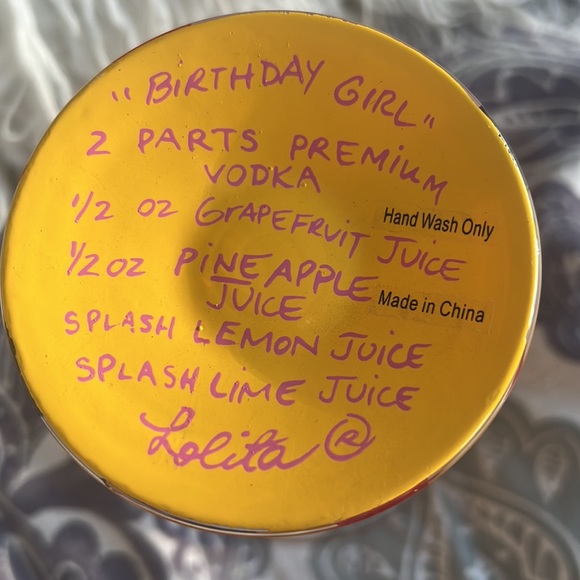 "BIRTHDAY GIRL"
2 PARTS PREMIUM
VODKA
1/2 OZ GRAPEFRUIT JUICE
1/2 OZ PINEAPPLE
JUICE
SPLASH LEMON JUICE
SPLASH LIME JUICE
Lolita ®
Hand Wash Only
Made in China